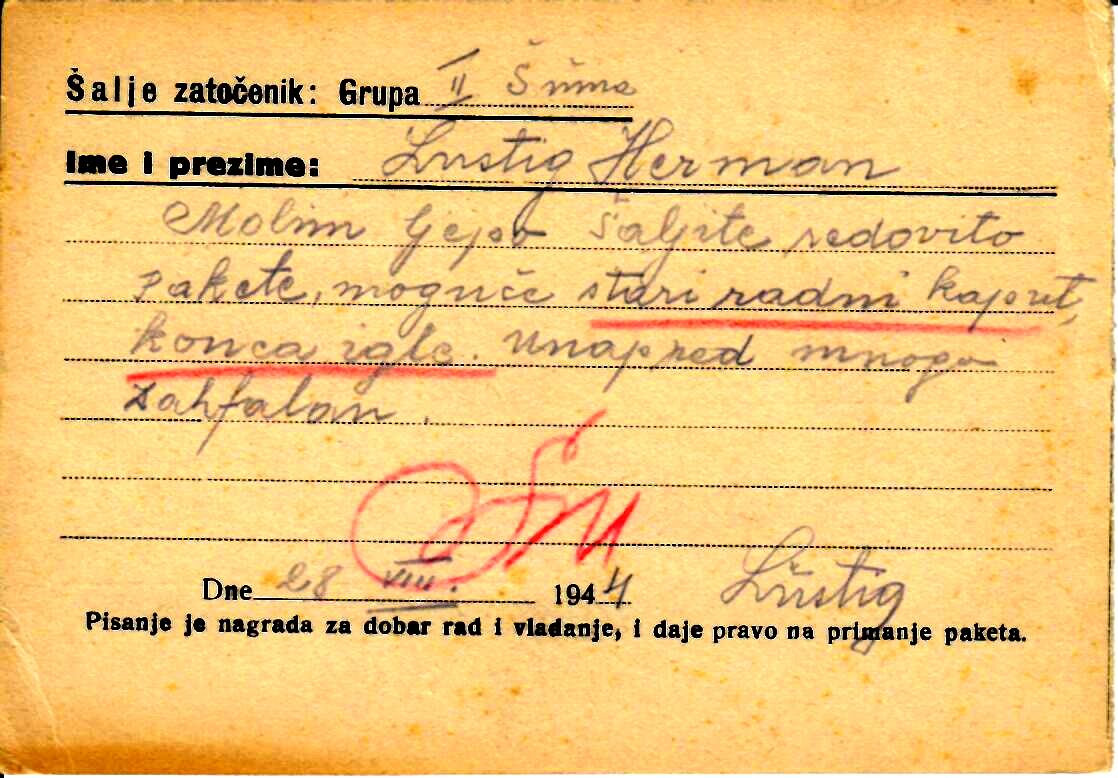 Šalje zatočenik: Grupa II Šuma
Ime i prezime: Lustig Herman
Molim ljepo šaljite redovito
pakete, moguće stari radni kaput,
konca igle. Unapred mnogo
zahfalan.
Dne 28 VIII. 1944 Lustig
Pisanje je nagrada za dobar rad i vladanje, i daje pravo na primanje paketa.